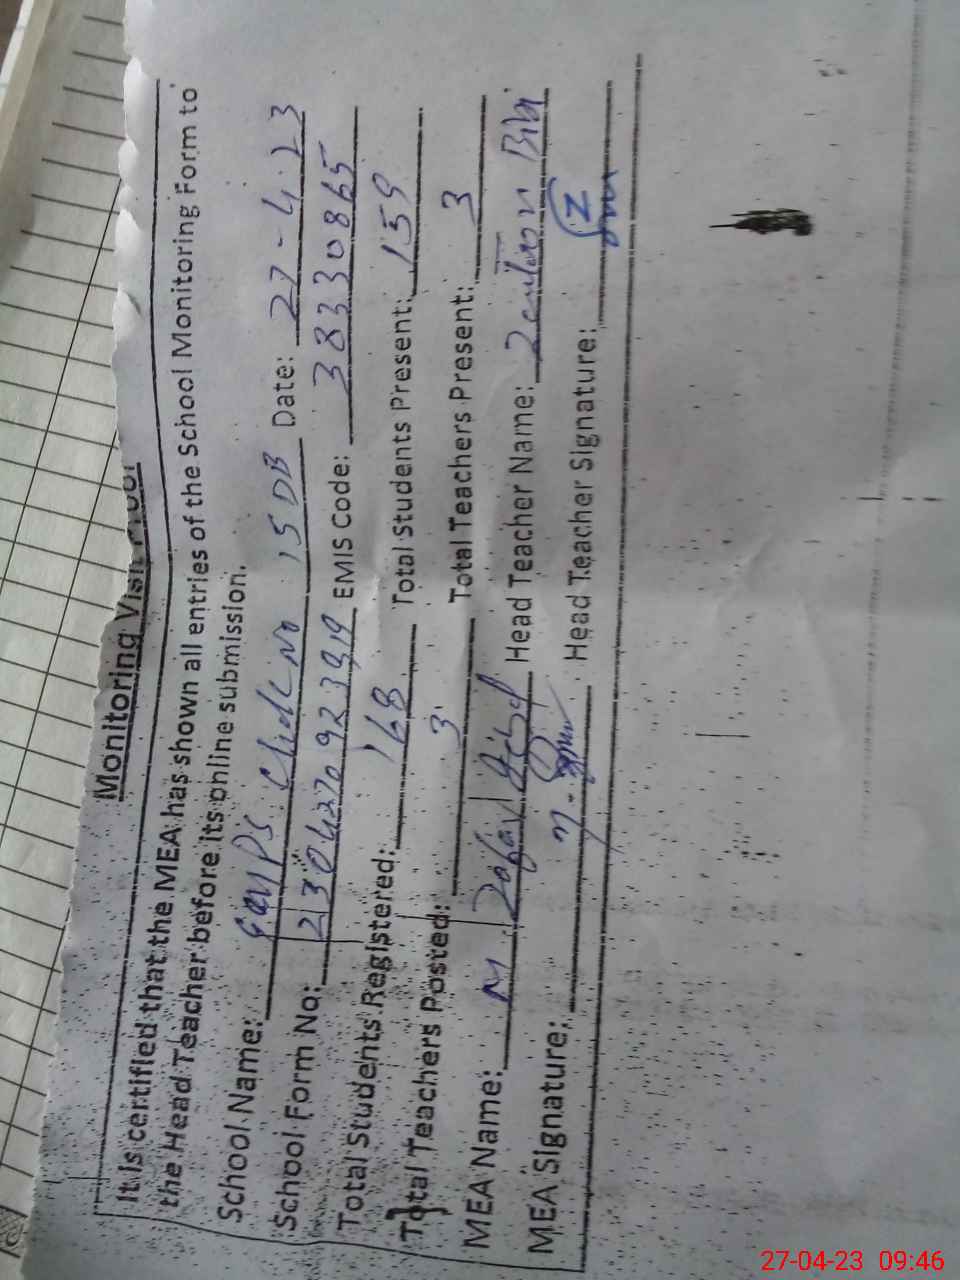 Monitoring Visit Proof
It is certified that the MEA has shown all entries of the School Monitoring Form to
the Head Teacher before its online submission.
School Name: GGMPS Chak No 15 DB Date: 27-4-23
School Form No: 230427092399 EMIS Code: 38330865
Total Students Registered: 168 Total Students Present: 159
Total Teachers Posted: 3 Total Teachers Present: 3
MEA Name: M Zafar Iqbal Head Teacher Name: Bibi
MEA Signature: Head Teacher Signature:
27-04-23 09:46